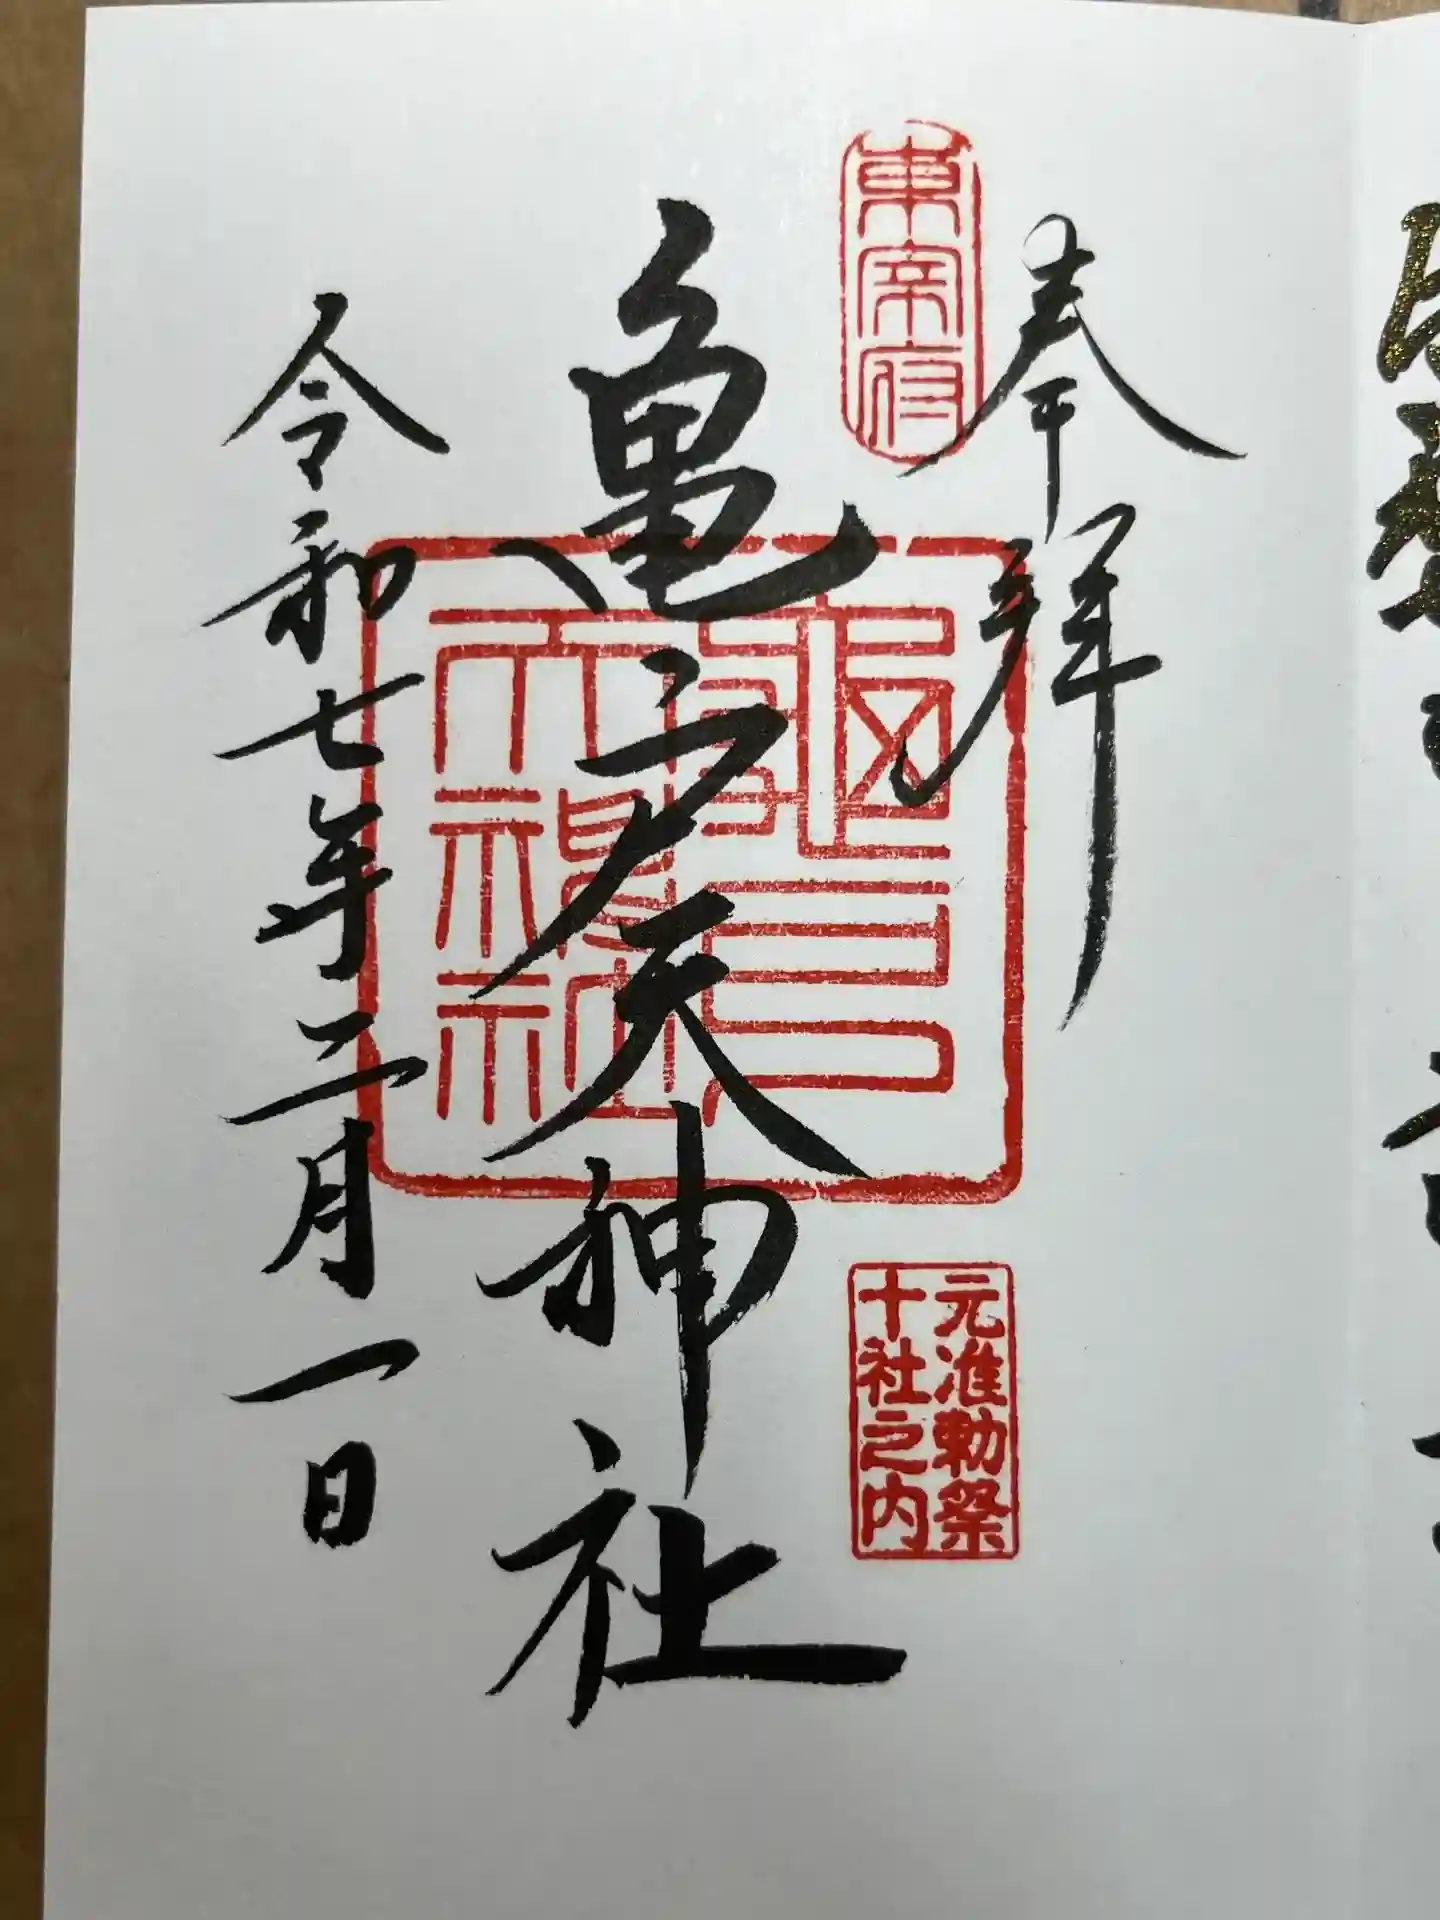 奉拝
東宰府
元准勅祭
十社之内
亀戸天神社
龜戸
天神社
令和七年二月一日